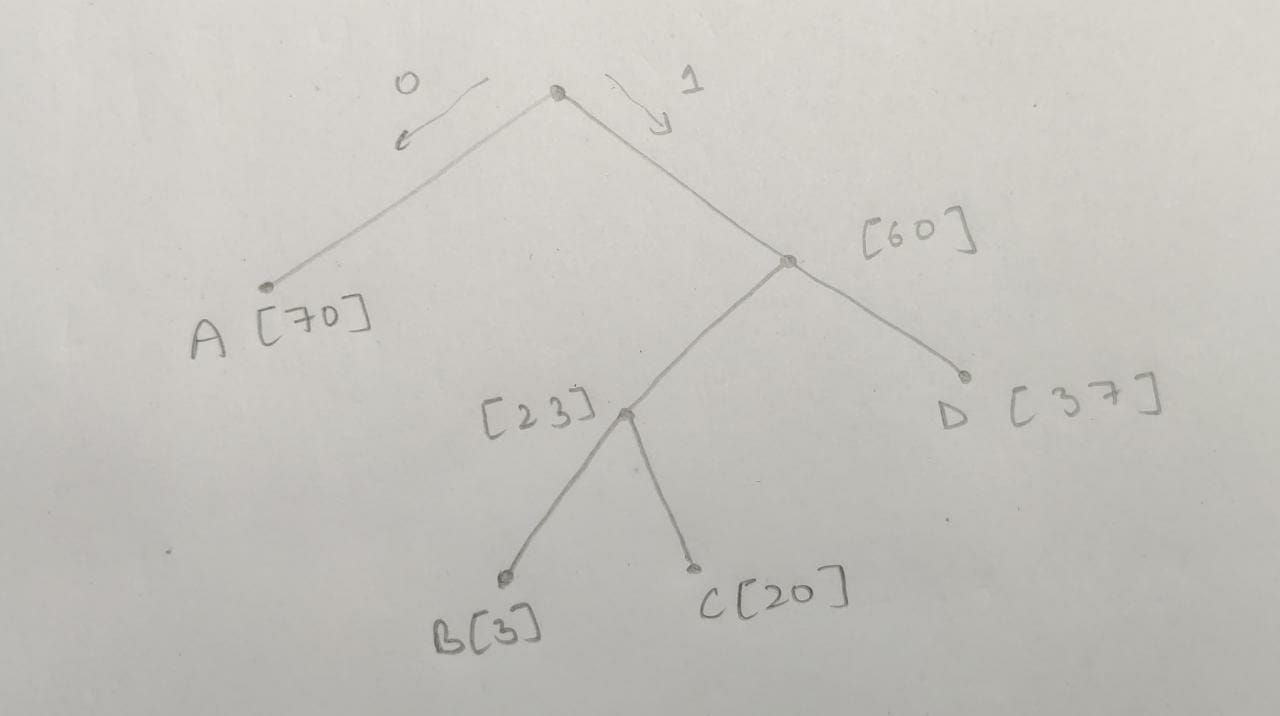 0
1
[60]
A [70]
[23]
D [37]
B[3]
C[20]